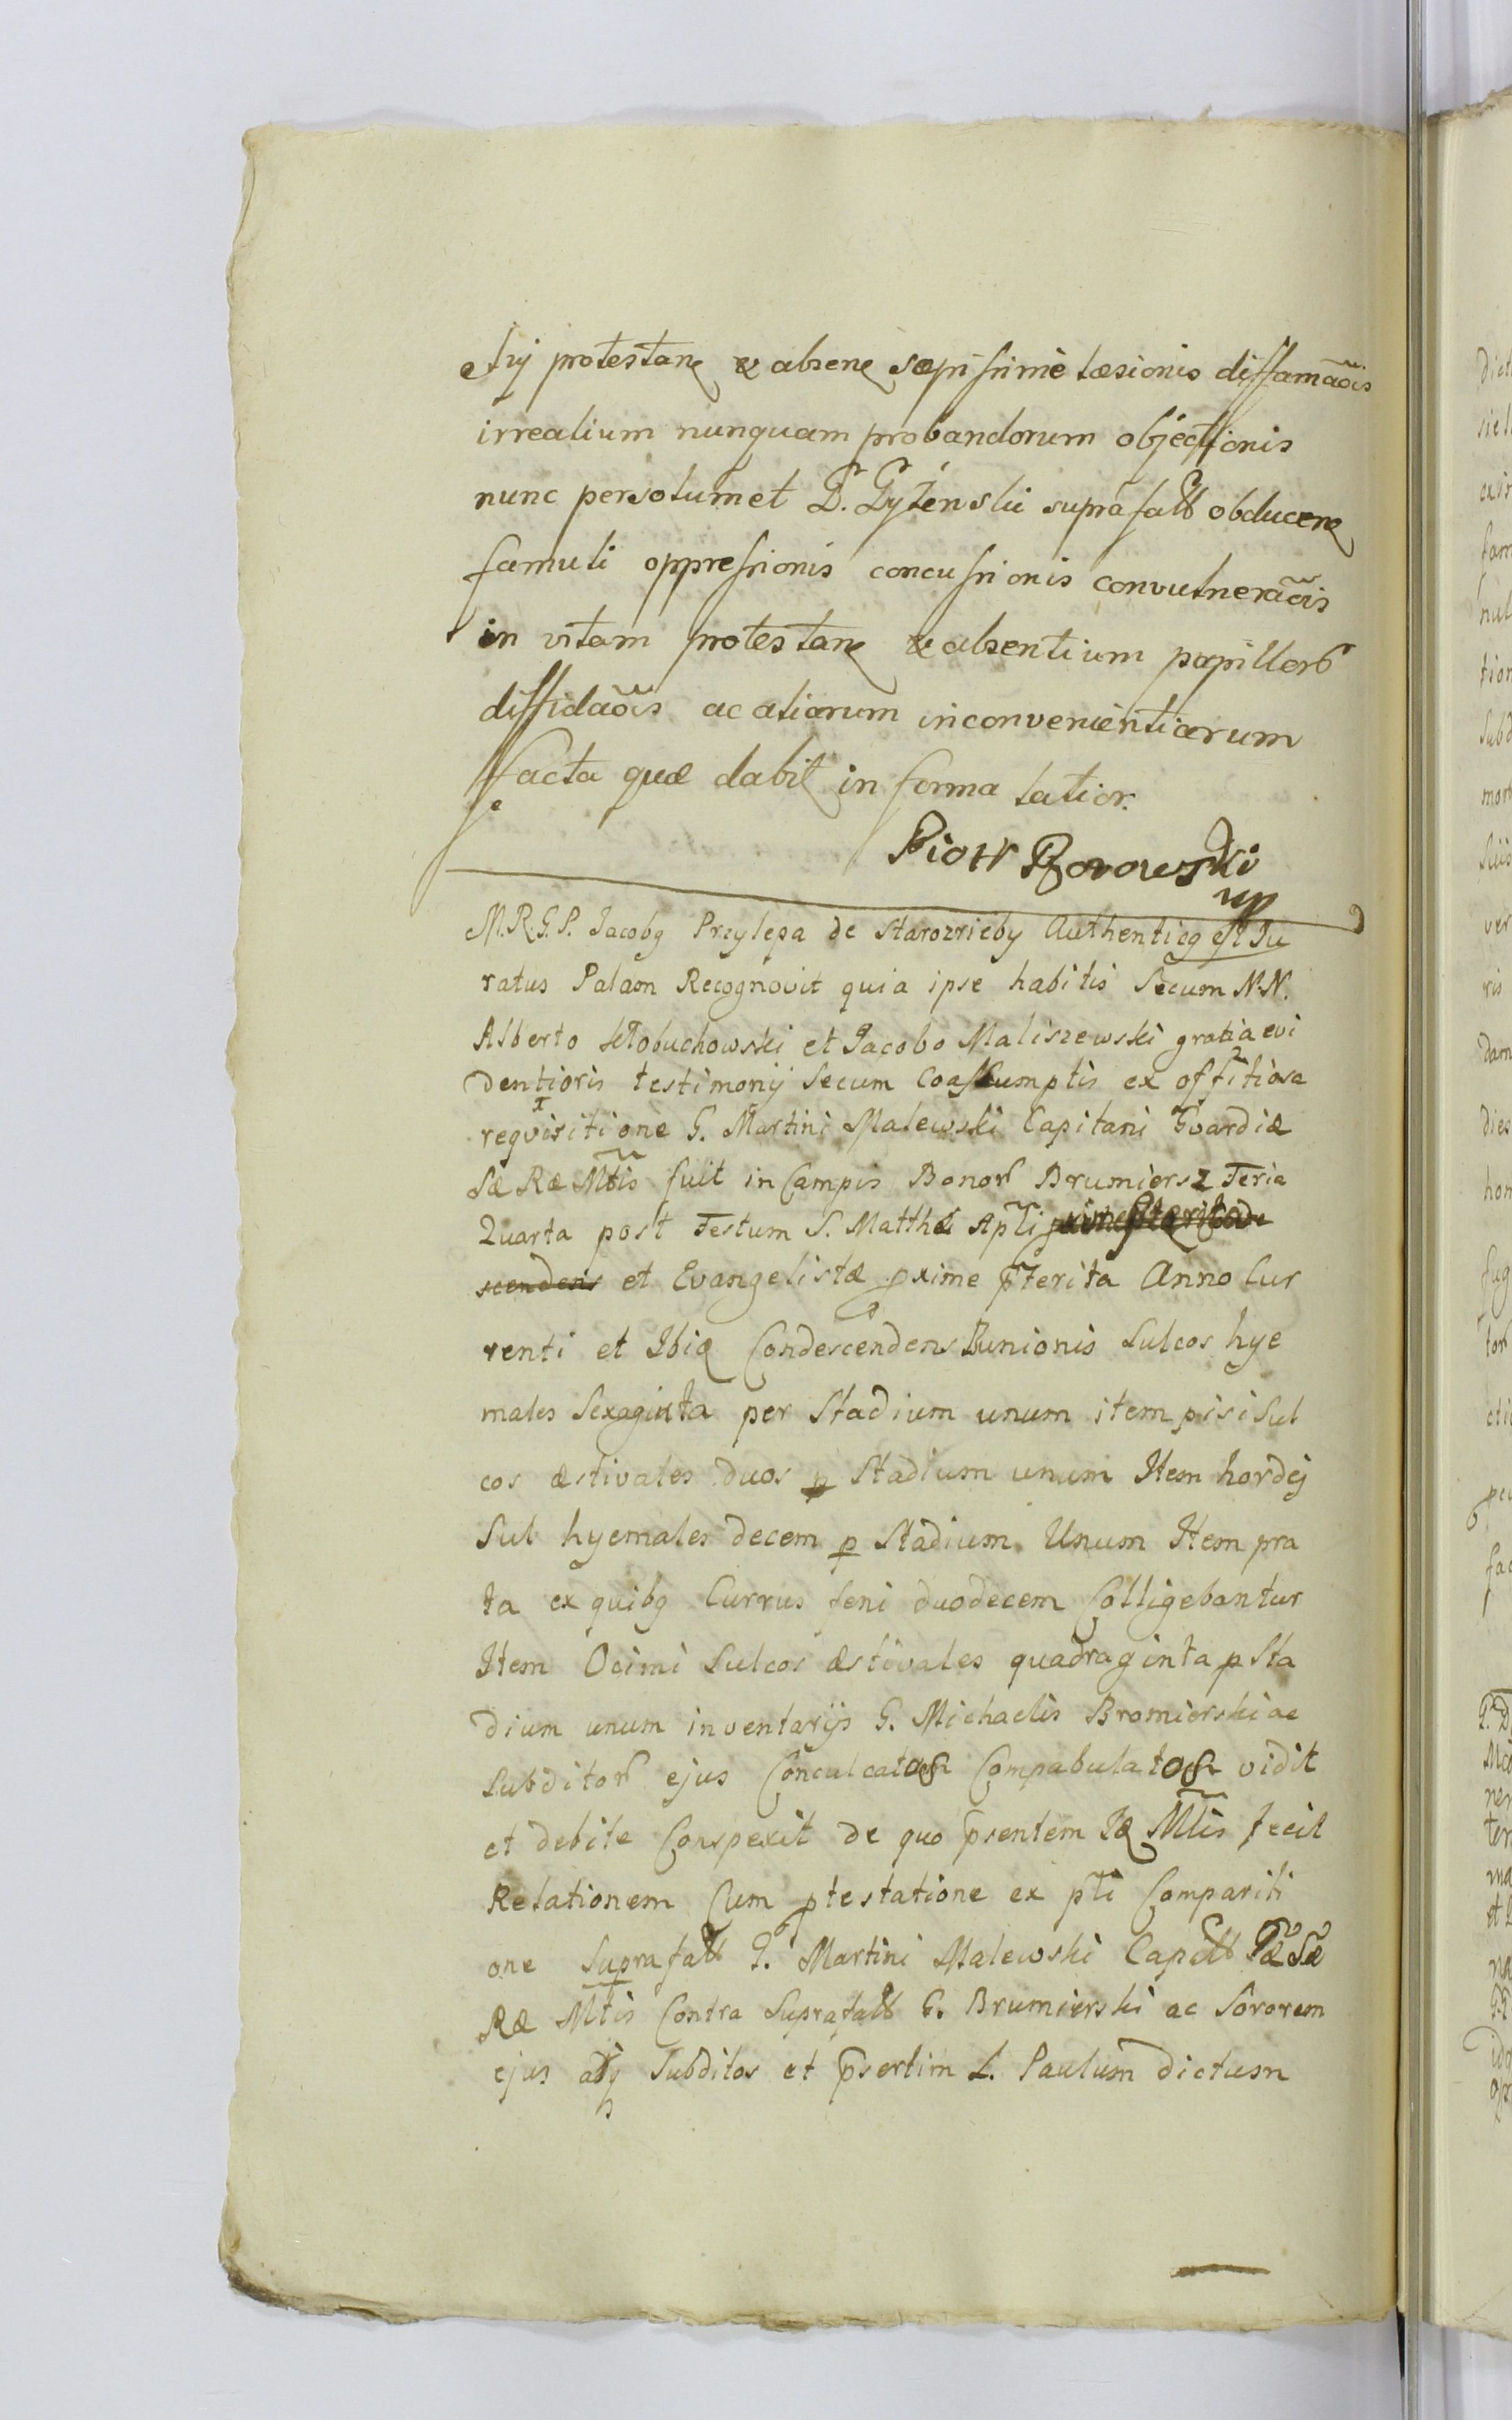 suj protestane & absene sæpissimè læsionis diffamãois
irrealium nunquam probandorum objectionis
nunc personlumet G. Gyżenski suprafatt obducene
famuli oppressionis concussionis convulnerãois
in vitam protestane & absentium pupillor
diffidãois ac aliarum inconvenientiarum
facta quæ dabit in forma latior.
Piotr Borowski
mp
M.R.G.P. Jacobq Przylepa de Starozrieby Authenticq est Ju
ratus Palam Recognovit quia ipse habitis Secum N.N.
Alberto Kłobuchowski et Jacobo Maliszewski gratia evi
dentioris testimonij Secum Coassumptis ex offitiosa
reqvisitione G. Martini Malewski Capitani Gvardiæ
Sæ Ræ Mtis fuit in Campis Bonor Brumiersz Feria
Quarta post Festum S. Matthæi Apli
scendens et Evangelistæ pxime pterita Anno Cur
renti et Ibiq Condescendens Runionis Sulcos hye
males Sexaginta per Stadium unum item pisi Sul
cos æstivales duos p Stadium unum Item hordej
Sul hyemales decem p Stadium Unum Item pra
ta ex quibq Currus feni duodecem Colligebantur
Item Ocimi Sulcos æstivales quadraginta p Sta
dium unum inventarijs G. Michaelis Bromierski ac
Subditor ejus Conculcatos Compabulatos vidit
et debite Conspexit de quo psentem Iæ Mtis fecit
Relationem Cum ptestatione ex pti Compariti
one Suprafatt G. Martini Malewski Capitt Gæ Sæ
Ræ Mtis Contra Suprafatt G. Brumierski ac Sororem
ejus atq Subditos et psertim L. Paulum dictum